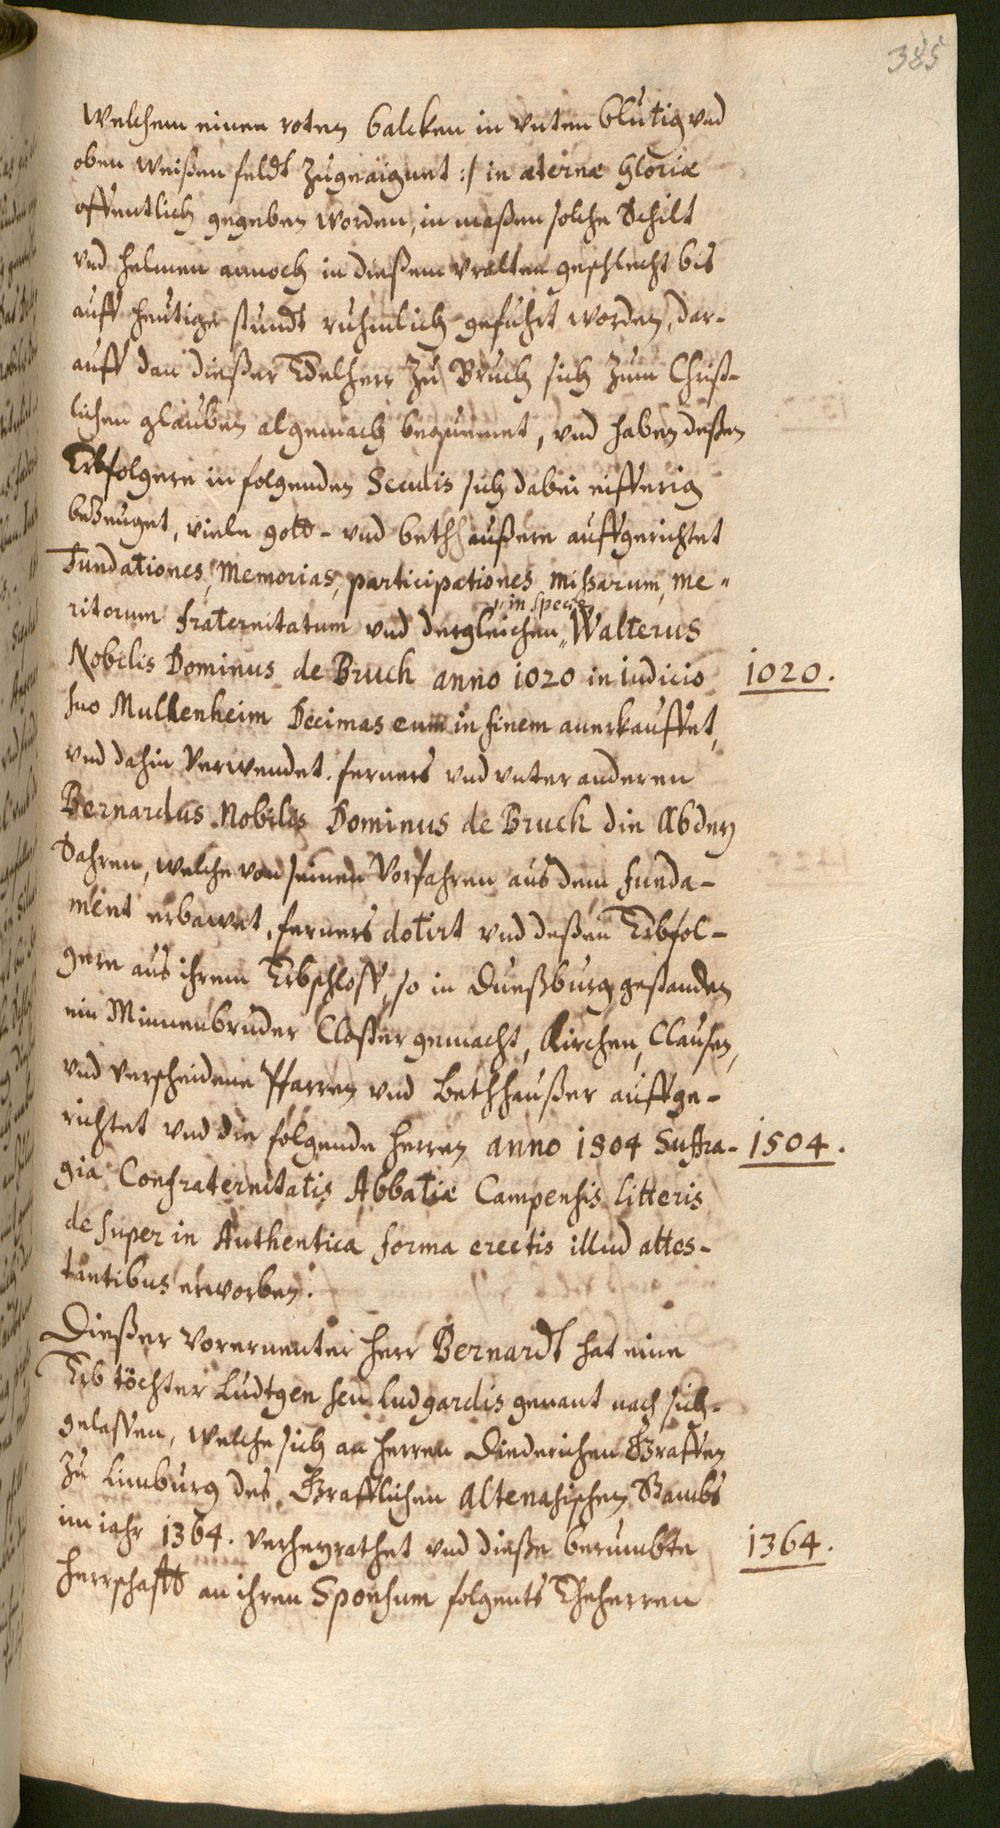 385
Welchem einen roten balcken in unten blutig und
oben weißen feldt zugeäignet :/ in æternæ Gloriæ
offentlich gegeben worden, in maßen solche Schilt
und helmen annoch in dießem uralten geschlecht bis
auff heutige stundt ruhmlich gefuhrt worden, dar-
auff dan dießer Edelherr zu Bruch sich zum Christ-
lichen glauben algemach bequemet, und haben deßen
Erbfolgere in folgenden Seculis sich dabei eifferig
bezeuget, viele gott- und bethhaußere auffgerichtet
Fundationes, Memorias, participationes missarum, me-
ritorum fraternitatum und dergleichen, in specie Walterus
Nobilis Dominus de Bruch anno 1020 in iudicio 1020.
suo Mulhenheim Decimas eum in finem anerkauffet,
und dahin verwendet. ferners und unter anderen
Bernardus Nobilis Dominus de Bruck die Abdey
Sahren, welche von seinen Vorfahren aus dem funda-
ment erbawet, ferners dotirt und deßen Erbfol-
gere aus ihrem Erbschloss, so in Dueßburg gestanden
ein Minnenbruder Closter gemacht, Kirchen, Clausen,
und verscheidene Pfarren und Bethhaußer auffge-
richtet und die folgende herren anno 1504 Suffra- 1504.
gia Confraternitatis Abbatiæ Campensis litteris
de super in Authentica forma erectis illud attes-
tantibus erworben.
Dießer vorernenter herr Bernardt hat eine
Erb töchter Ludtgen seu Ludgardis genant nach sich
gelassen, welche sich an herren Diederichen Graffen
zu Limburg des Grafflichen Altenahischen Stambs
im iahr 1364. verheyrathet und dieße berumbte 1364.
herrschafft an ihren Sponsum folgents Eheherren